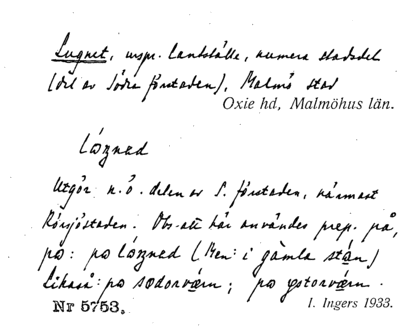 Lugnet, urspr. landställe, numera stadsdel
(del av Södra förstaden), Malmö stad
Oxie hd, Malmöhus län.
lózned
Utgör n.ö. delen av S. förstaden, närmast
Rörsjöstaden. Obs. att här användes prep. på,
po: po lózned (Men: i gàmla stán)
Likaså: po sødorværn; po ystorværn.
Nr 5753.
I. Ingers 1933.